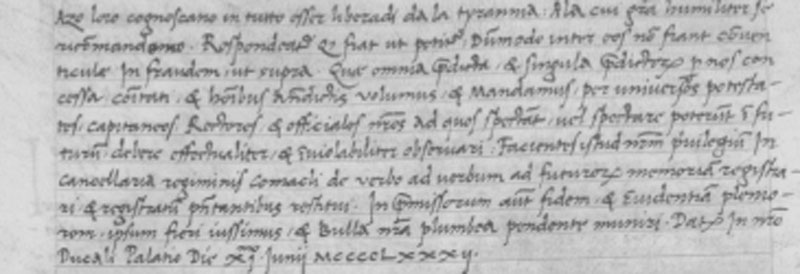 Azo loro cognoscano in tutto esser liberadi da la tyrannia. Ala cui gra humiliter se
ricomandomo. Respondeatꝫ Q fiat ut petitꝫ. Dumodo inter eos no fiant coven
ticulæ In fraudem, ut supra. Quæ omnia p̄dicta, & singula p̄dictoꝝ p nos con
cessa, coītati, & hoībus an̄dictis volumus, & Mandamus, per universos potesta-
tes, capitaneos, Rectores, & officiales nr̄os ad quos spectāt, vel spectare poterūt ī fu-
turū, debere effectualiter, & īviolabiliter observari. Facientes istud nr̄m privilegiū In
cancellaria regiminis Comacli de verbo ad verbum ad futuroꝝ memoriā registra-
ri, & registratū pn̄tantibus restitui. In q̄missorum aūt fidem, & Evidentiā pleno-
rem, ipsum fieri iussimus, & Bulla nr̄a plumbea pendente muniri. Datꝫ In nr̄o
Ducali Palatio Die Junij MCCCCLXXXIJ.